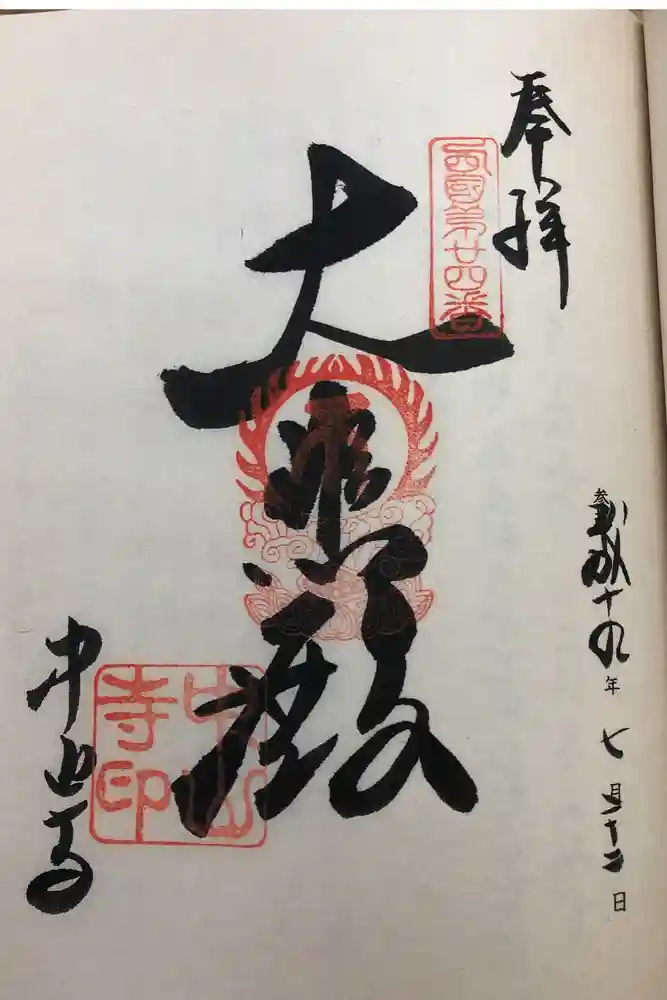 奉拝
西国第廿四番
大悲殿
中山寺
中山
寺印
平成十九年七月十二日